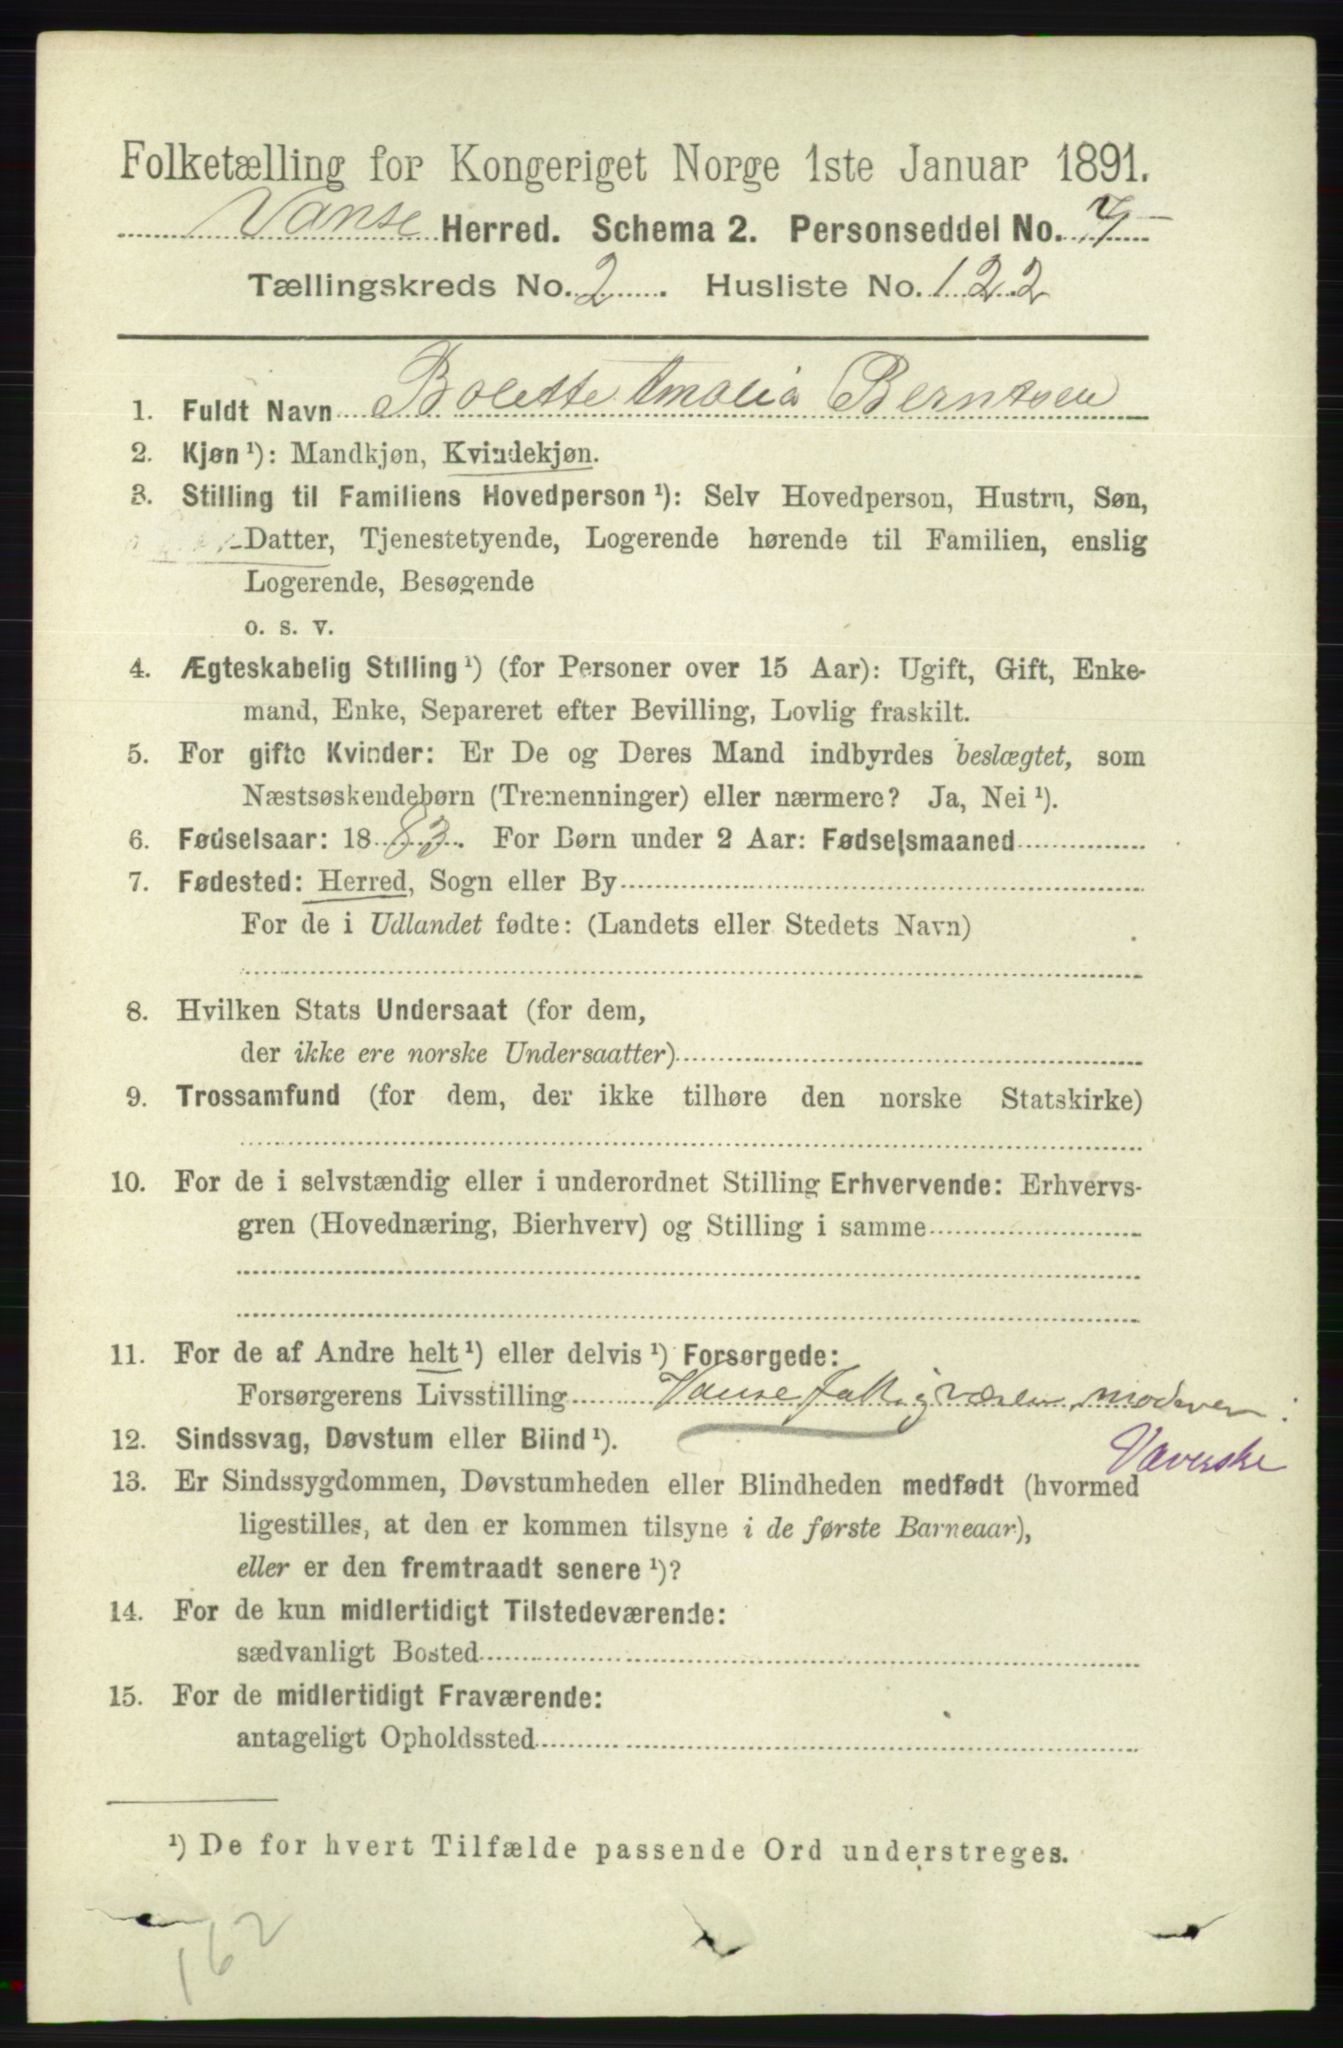 Folketælling for Kongeriget Norge 1ste Januar 1891.
Vanse Herred. Schema 2. Personseddel No.
Tællingskreds No. 2. Husliste No. 122
1. Fuldt Navn Bolette Amalia Berntsen
2. Kjøn ¹): Mandkjøn, Kvindekjøn.
3. Stilling til Familiens Hovedperson ¹): Selv Hovedperson, Hustru, Søn,
Datter, Tjenestetyende, Logerende hørende til Familien, enslig
Logerende, Besøgende
o. s. v.
4. Ægteskabelig Stilling ¹) (for Personer over 15 Aar): Ugift, Gift, Enke-
mand, Enke, Separeret efter Bevilling, Lovlig fraskilt.
5. For gifte Kvinder: Er De og Deres Mand indbyrdes beslægtet, som
Næstsøskendebørn (Tremenninger) eller nærmere? Ja, Nei ¹).
6. Fødselsaar: 1883. For Børn under 2 Aar: Fødselsmaaned
7. Fødested: Herred, Sogn eller By
For de i Udlandet fødte: (Landets eller Stedets Navn)
8. Hvilken Stats Undersaat (for dem,
der ikke ere norske Undersaatter)
9. Trossamfund (for dem, der ikke tilhøre den norske Statskirke)
10. For de i selvstændig eller i underordnet Stilling Erhvervende: Erhvervs-
gren (Hovednæring, Bierhverv) og Stilling i samme
11. For de af Andre helt ¹) eller delvis ¹) Forsørgede:
Forsørgerens Livsstilling Vanse Fattigvæsen, moderen:
Væverske
12. Sindssvag, Døvstum eller Blind ¹).
13. Er Sindssygdommen, Døvstumheden eller Blindheden medfødt (hvormed
ligestilles, at den er kommen tilsyne i de første Barneaar),
eller er den fremtraadt senere ¹)?
14. For de kun midlertidigt Tilstedeværende:
sædvanligt Bosted
15. For de midlertidigt Fraværende:
antageligt Opholdssted
¹) De for hvert Tilfælde passende Ord understreges.
162